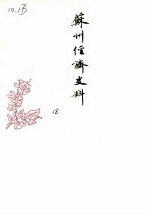 10.1B
蘇州经濟史料
18